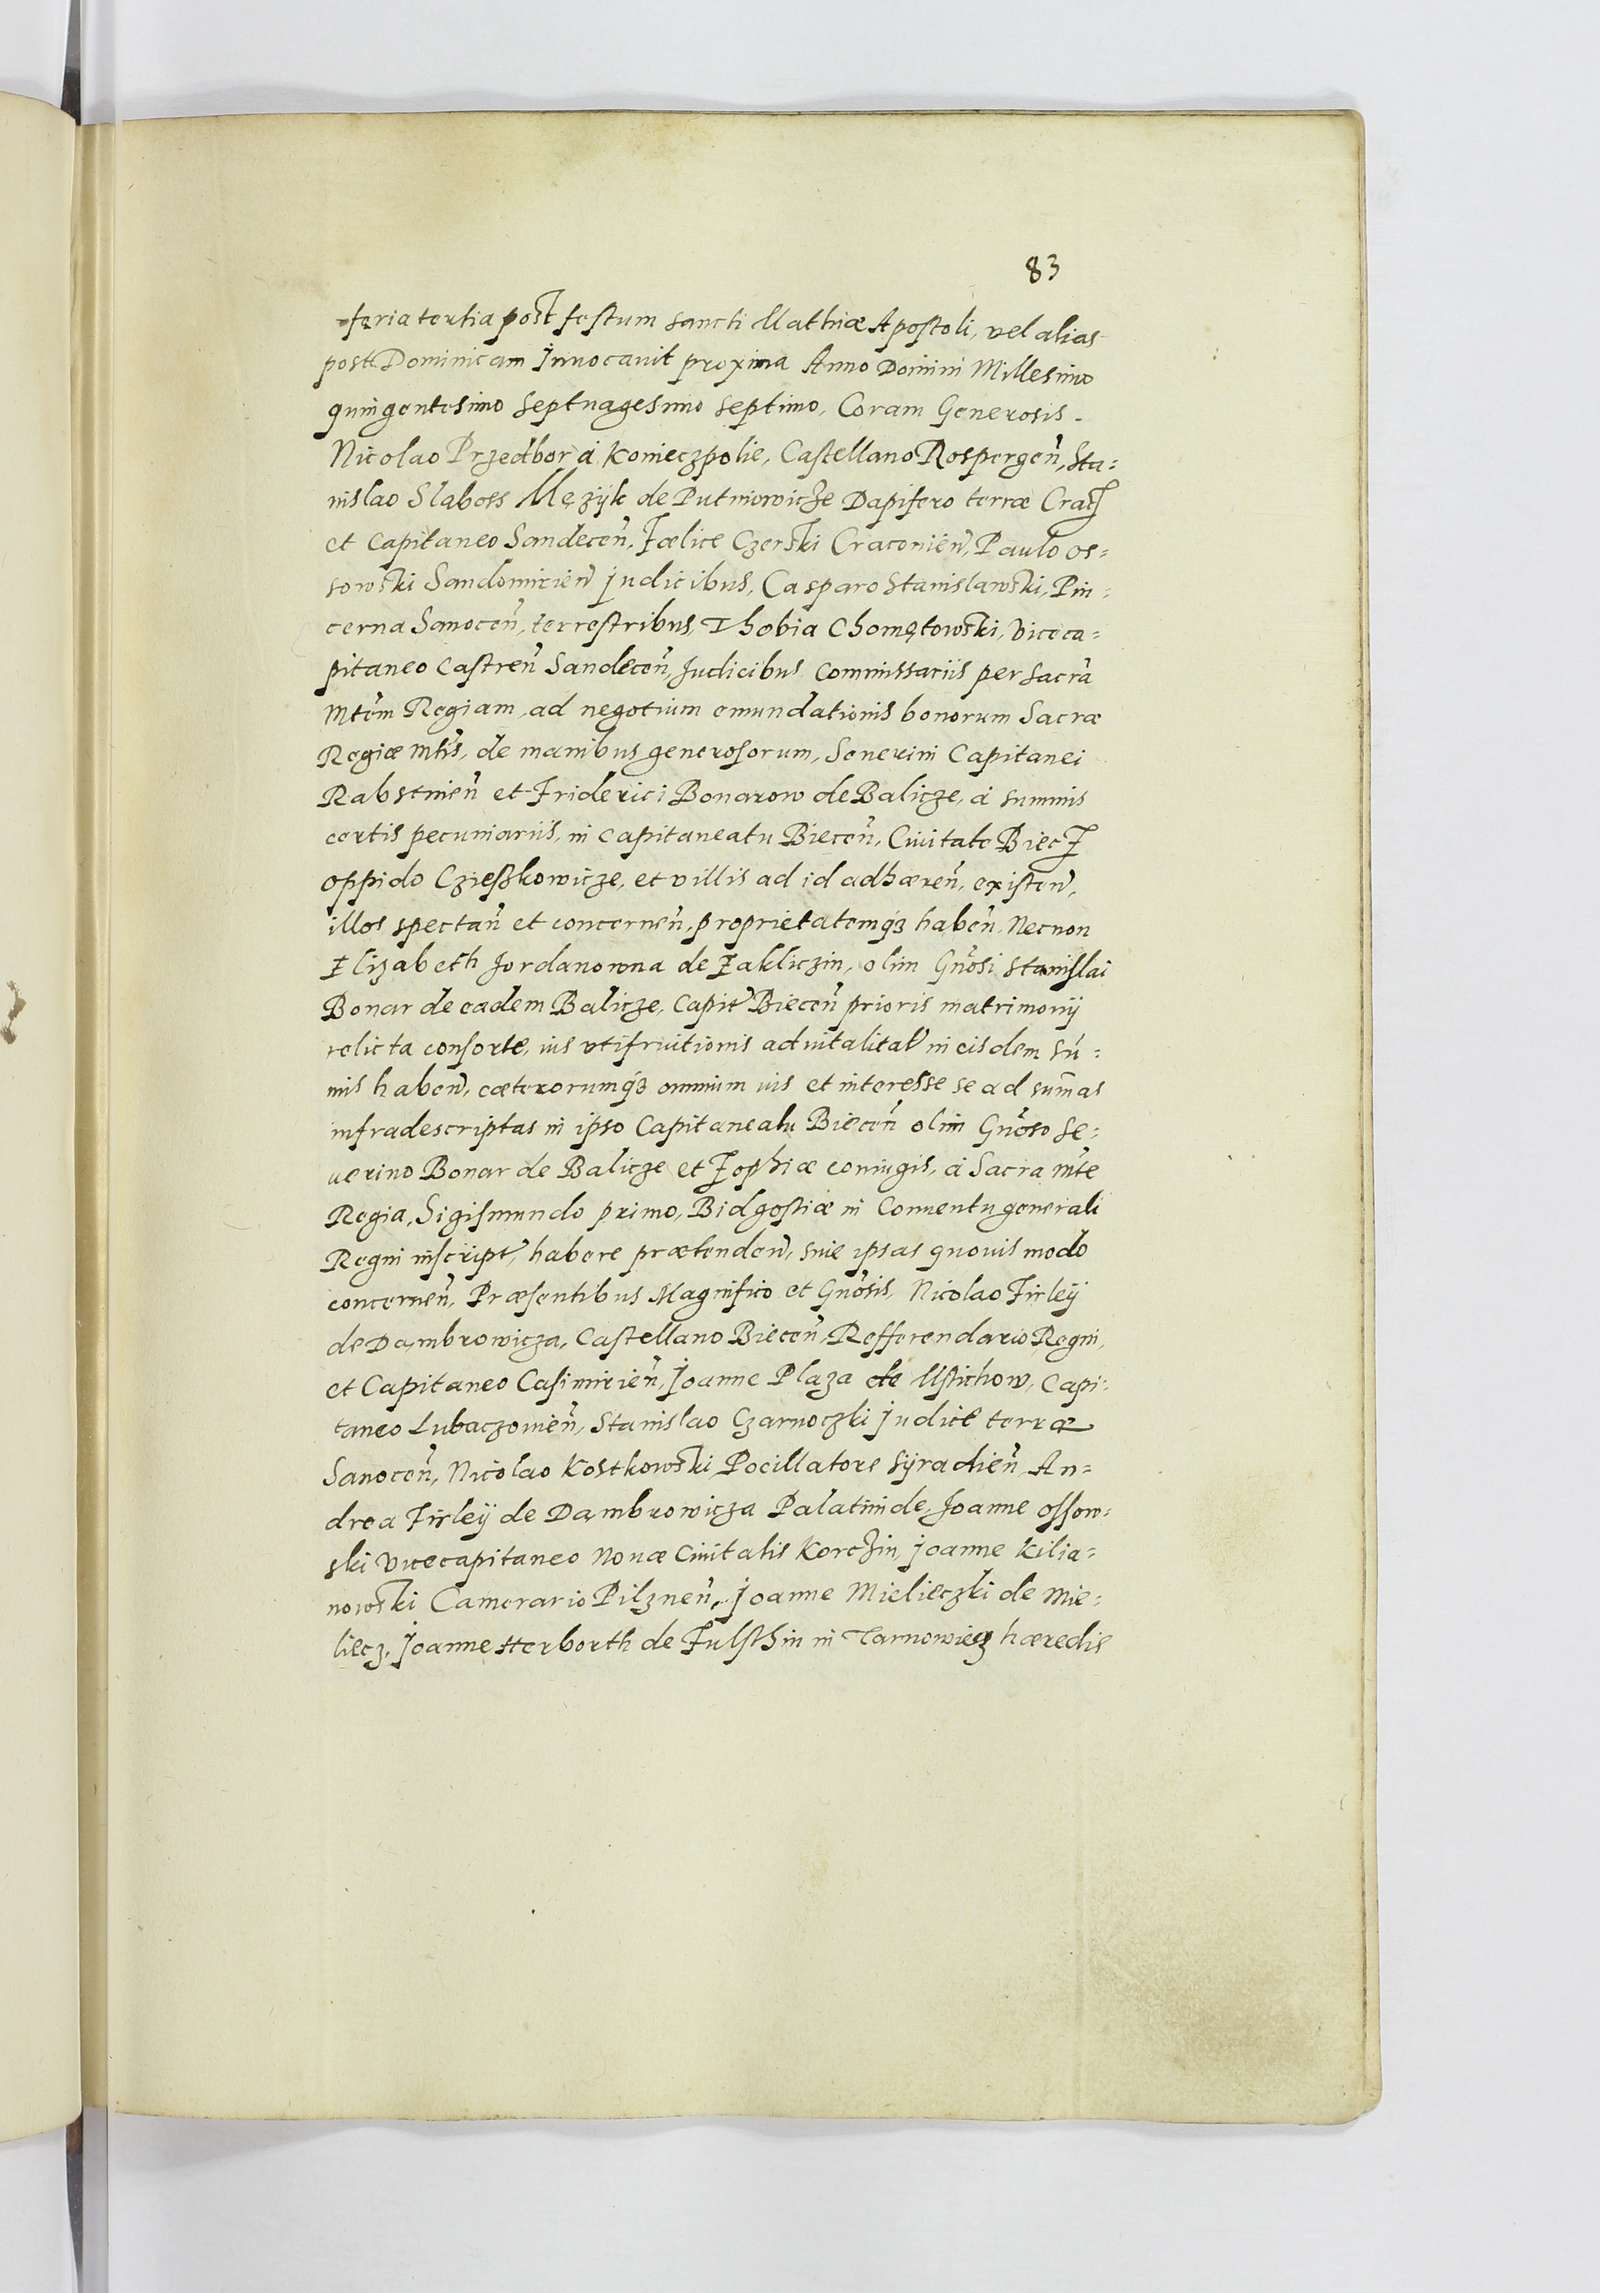 83
feria tertia post festum sancti Mathiæ Apostoli, vel alias
post Dominicam Inuocauit proxima Anno Domini Millesimo
quingentesimo septuagesimo septimo, Coram Generosis
Nicolao Przedbor à Konieczpolie, Castellano Rospergeñ, Sta=
nislao Slabosz Mężÿk de Putniowicze Dapifero terræ Cracȝ
et Capitaneo Sandeceñ, Fœlice Czerski Cracouieñ, Paulo Os=
sowski Sandomirieñ Judicibus, Casparo Stanislawski, Pin=
cerna Sanoceñ, terrestribus, Thobia Chomętowski, Viceca=
pitaneo Castreñ Sandeceñ, Judicibus Commissariis per Sacrã
Mtẽm Regiam, ad negotium emundationis bonorum Sacræ
Regiæ Mtĩs, de manibus generosorum, Seuerini Capitanei
Rabstinieñ et Friderici Bonarow de Balicze, à summis
certis pecuniariis, in Capitaneatu Bieceñ, Ciuitate Biecȝ
oppido Czieszkowicze, et villis ad id adhæreñ, existeñ,
illos spectañ et concerneñ, proprietatemqȝ habeñ, Necnon
Elizabeth Jordanowna de Zakliczin, olim Gñosi Stanislai
Bonar de eadem Balicze, Capit Bieceñ prioris matrimonij
relicta consorte, ius vtifruitionis aduitalitat in eisdem sũ=
mis habeñ, cæterorumqȝ omnium ius et interesse se ad sum̃as
infradescriptas in ipso Capitaneatu Bieceñ olim Gñoso Se=
uerino Bonar de Balicze et Zophiæ coniugis, à Sacra Mte
Regia, Sigismundo primo, Bidgostiæ in Conuentu generali
Regni inscript, habere prætendeñ, siue ipsas quouis modo
concerneñ, Præsentibus Magnifico et Gñosis, Nicolao Firleÿ
de Dambrowicza, Castellano Bieceñ, Refferendario Regni,
et Capitaneo Casimirieñ, Joanne Plaza de Mstichow, Capi=
taneo Lubaczouieñ, Stanislao Czarnoczki Judice terræ
Sanoceñ, Nicolao Kostkowski, Pocillatore Sÿradieñ, An=
drea Firleÿ de Dambrowicza Palatinide, Joanne Ossow=
ski Vicecapitaneo Nouæ Ciuitatis Korczin, Joanne Kilia=
nowski Camerario Pilzneñ, Joanne Mielieczki de Mie=
liecz, Joanne Herborth de Fulsthin in Tarnowiecz hærede